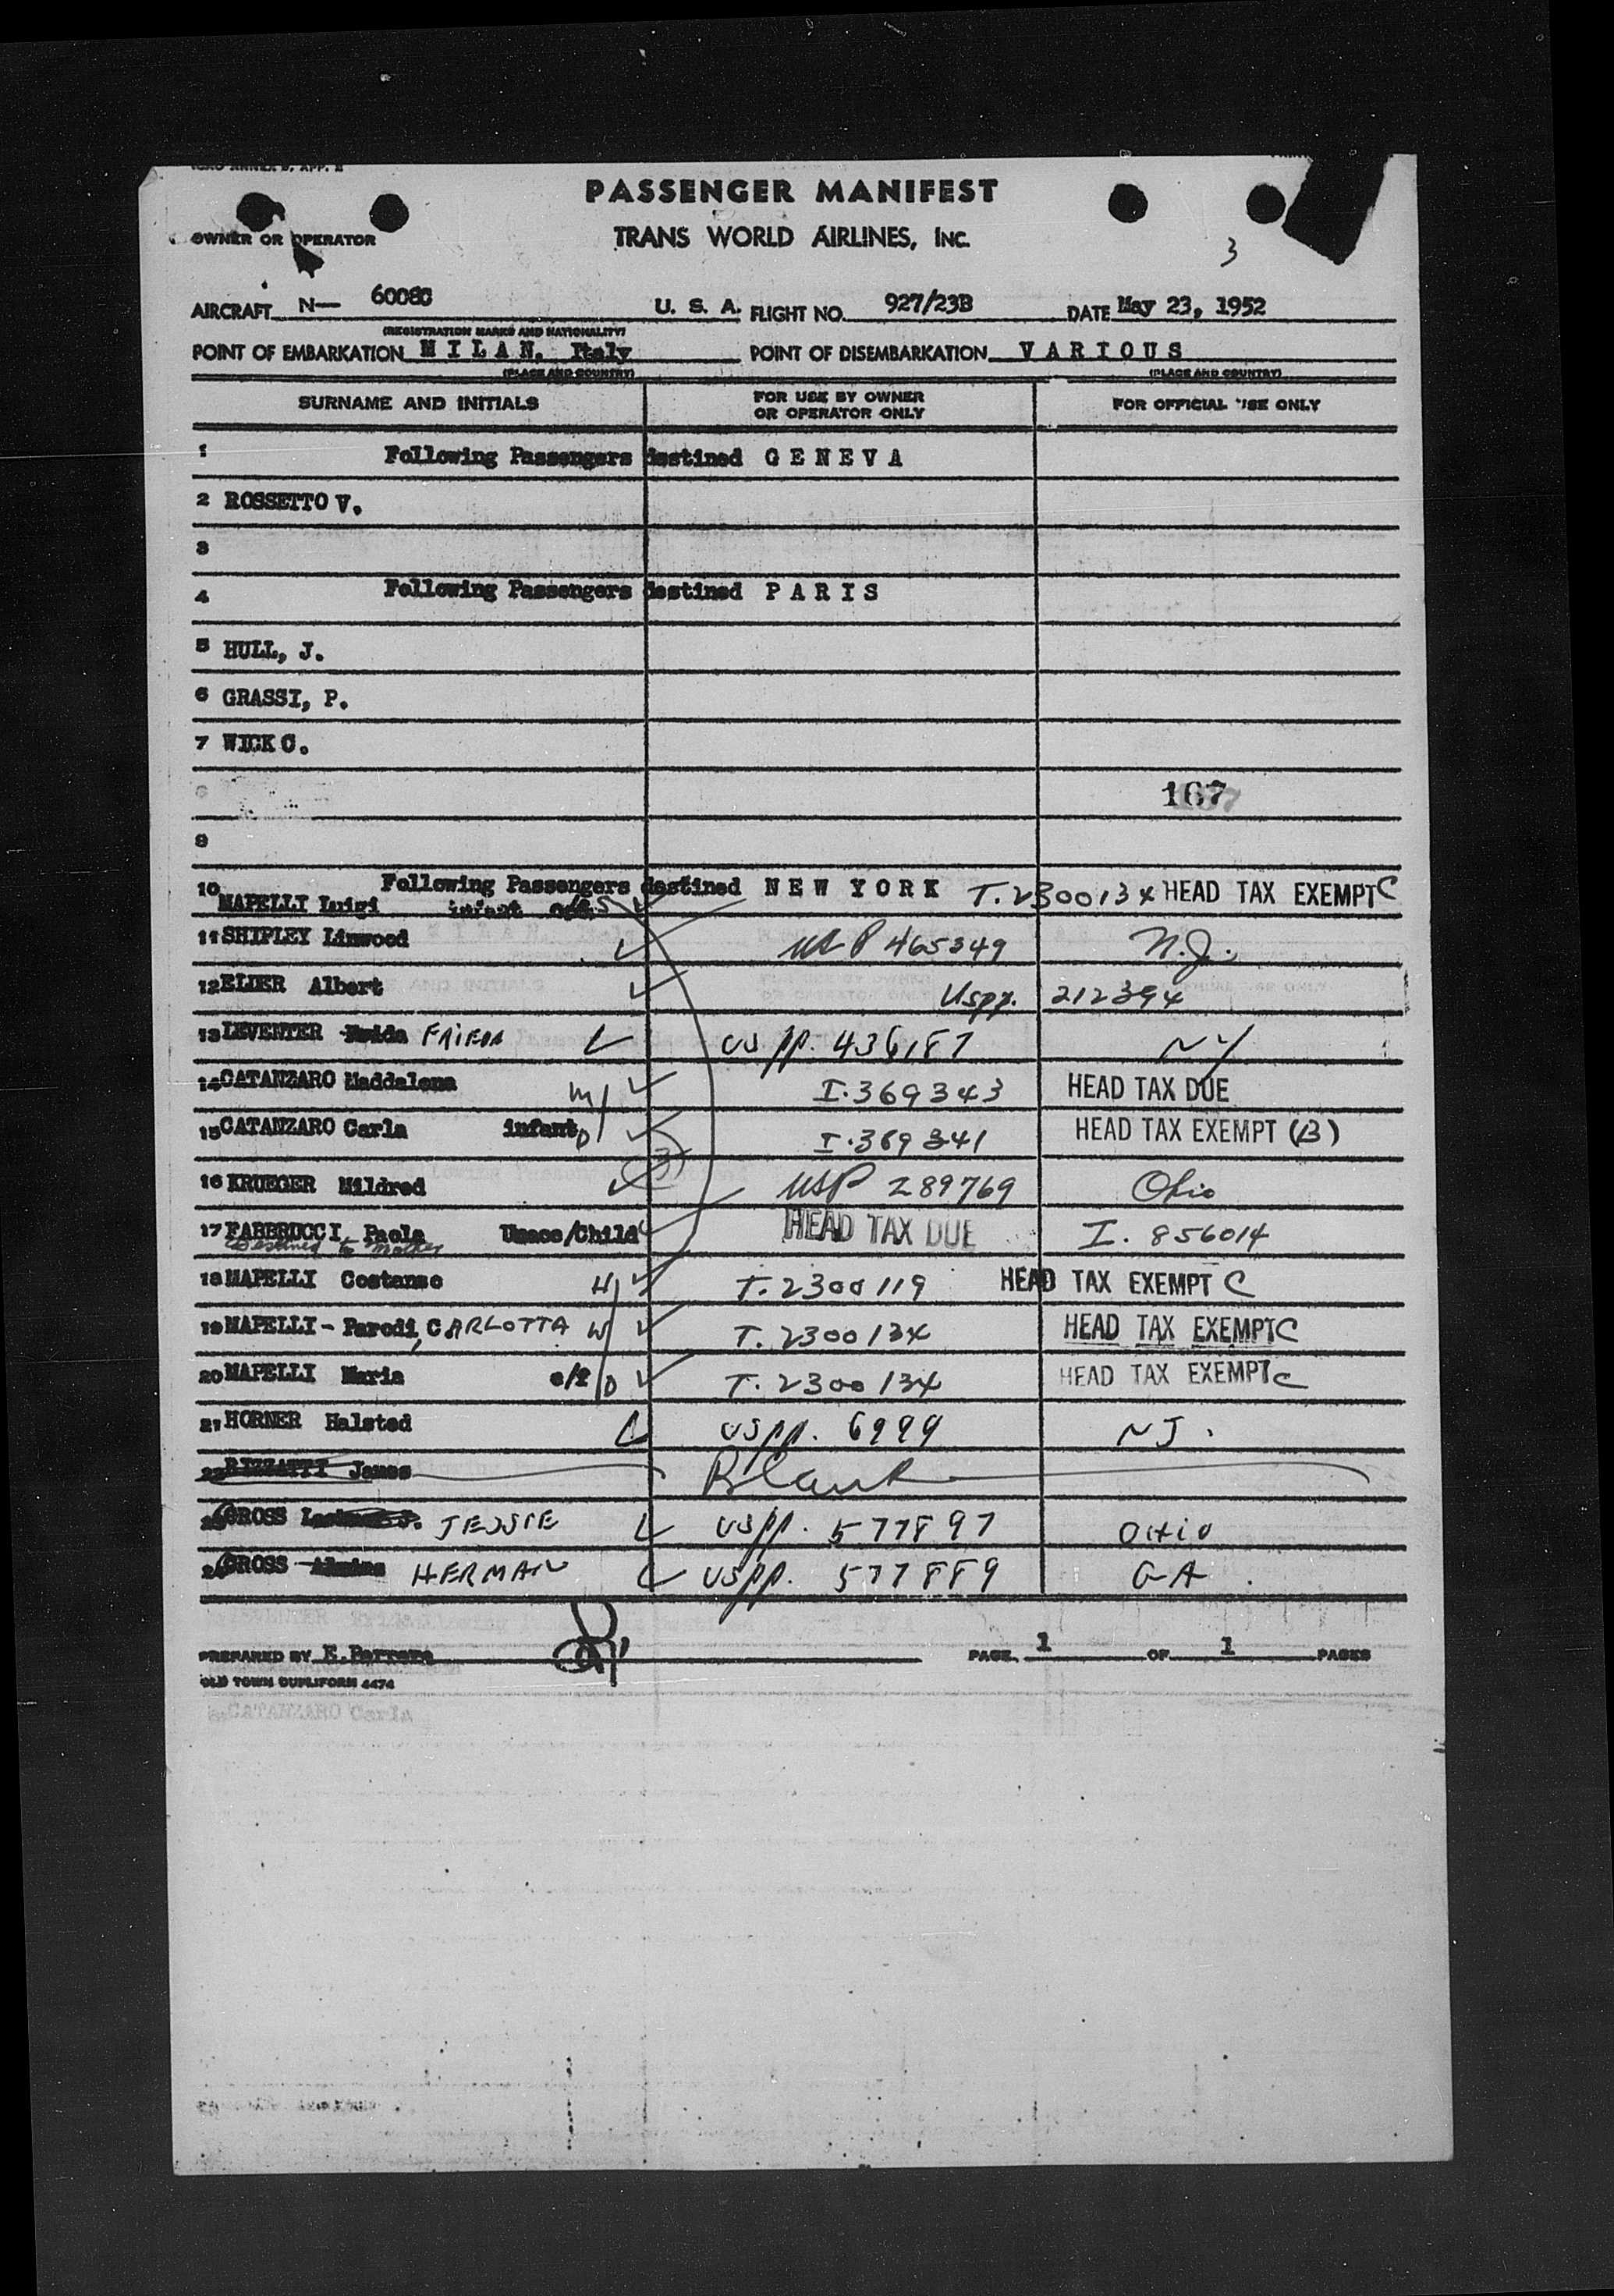 PASSENGER MANIFEST
OWNER OR OPERATOR
TRANS WORLD AIRLINES, INC.
3
AIRCRAFT N— 6008C U. S. A. FLIGHT NO. 927/23B DATE May 23, 1952
(REGISTRATION MARKS AND NATIONALITY)
POINT OF EMBARKATION M I L A N. Italy POINT OF DISEMBARKATION V A R I O U S
(PLACE AND COUNTRY) (PLACE AND COUNTRY)
SURNAME AND INITIALS FOR USE BY OWNER OR OPERATOR ONLY FOR OFFICIAL USE ONLY
1 Following Passengers destined G E N E V A
2 ROSSETTO V.
3
4 Following Passengers destined P A R I S
5 HULL, J.
6 GRASSI, P.
7 WICK C.
8 167
9
10 Following Passengers destined N E W Y O R K T.2300134 HEAD TAX EXEMPT C
MAPELLI Luigi infant S
11 SHIPLEY Linwood USP 465349 N.J.
12 ELDER Albert Uspp. 212394
13 LEVENTER FRIEDA US pp. 436187 NY
14 CATANZARO Maddalena M I.369343 HEAD TAX DUE
15 CATANZARO Carla infant D I.369341 HEAD TAX EXEMPT (B)
3
16 KRUEGER Mildred USP 289769 Ohio
17 FABBRUCCI, Paola Unacc/Child HEAD TAX DUE I. 856014
Destined to Mother
18 MAPELLI Costanso H T.2300119 HEAD TAX EXEMPT C
19 MAPELLI - Parodi, CARLOTTA W T.2300134 HEAD TAX EXEMPT C
20 MAPELLI Maria c/f D T.2300134 HEAD TAX EXEMPT C
21 HORNER Halsted US pp. 6999 NJ.
22 RIZZATTI James Blank
23 GROSS JESSIE US pp. 577897 OHIO
24 GROSS HERMAN US pp. 577889 GA.
PREPARED BY E. Perrera PAGE 1 OF 1 PAGES
OLD TOWN DUPLIFORM 4474
CATANZARO Carla